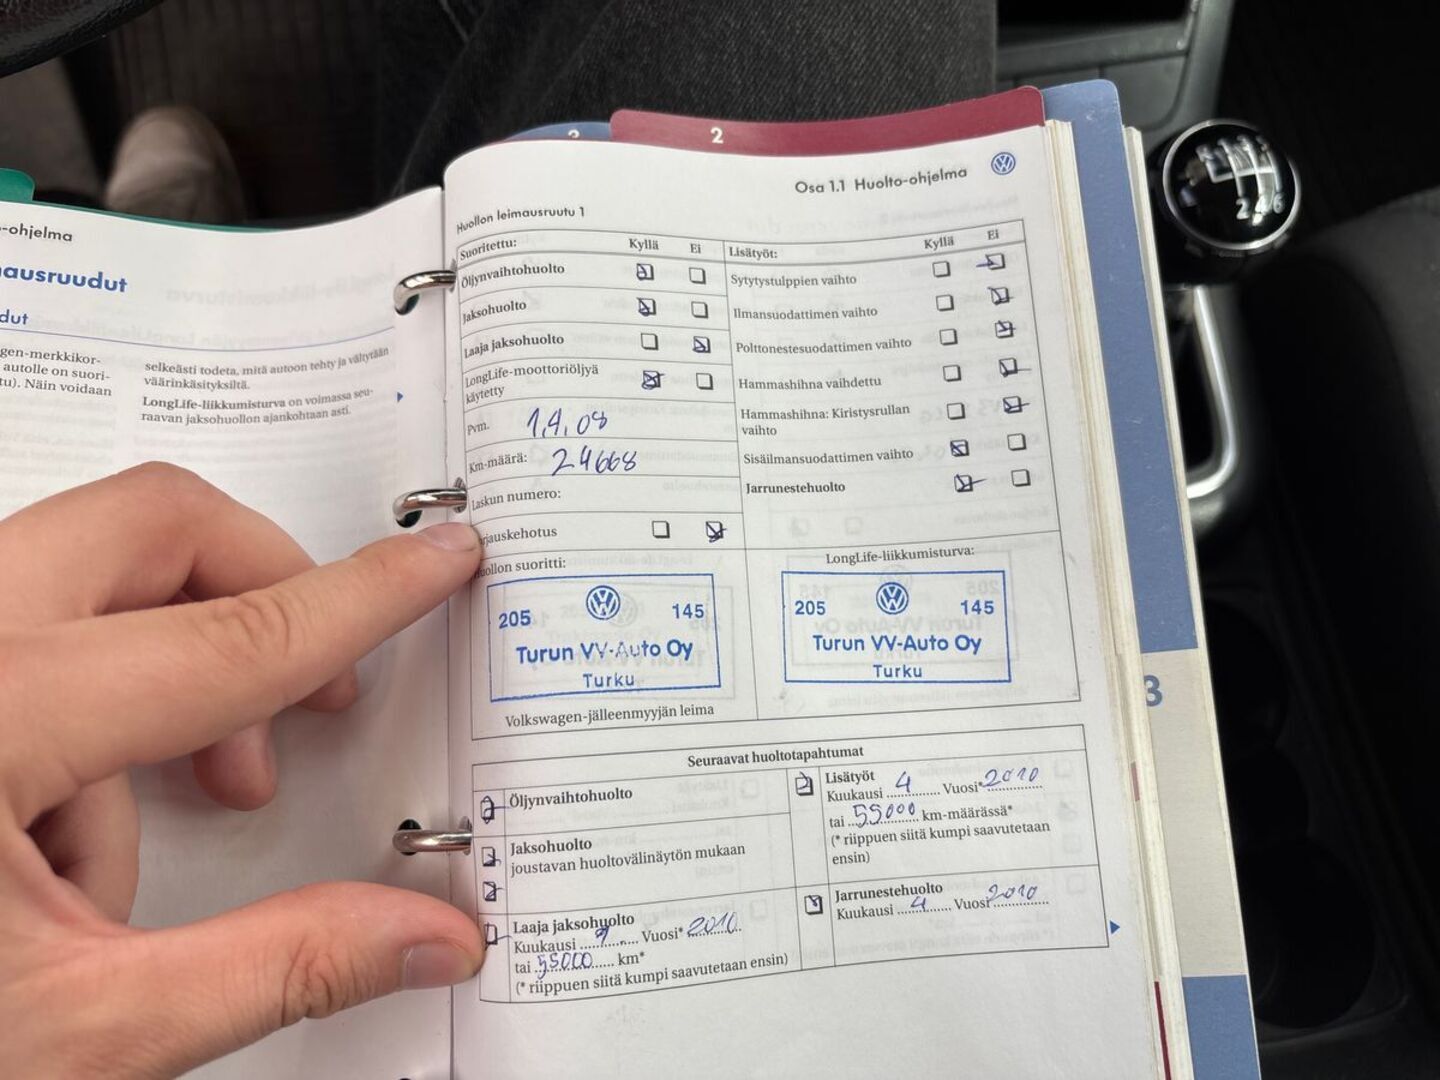 2
2
-ohjelma
ausruudut
dut
gen-merkkikor-
autolle on suori-
tu). Näin voidaan
selkeästi todeta, mitä autoon tehty ja vältytään
väärinkäsityksiltä.
LongLife-liikkumisturva on voimassa seu-
raavan jaksohuollon ajankohtaan asti.
Osa 1.1 Huolto-ohjelma
Huollon leimausruutu 1
Suoritettu: Kyllä Ei
Öljynvaihtohuolto
Jaksohuolto
Laaja jaksohuolto
LongLife-moottoriöljyä
käytetty
Pvm. 1.4.08
Km-määrä: 24668
Laskun numero:
rjauskehotus
Huollon suoritti:
205 145
Turun VV-Auto Oy
Turku
Volkswagen-jälleenmyyjän leima
Lisätyöt: Kyllä Ei
Sytytystulppien vaihto
Ilmansuodattimen vaihto
Polttonestesuodattimen vaihto
Hammashihna vaihdettu
Hammashihna: Kiristysrullan
vaihto
Sisäilmansuodattimen vaihto
Jarrunestehuolto
LongLife-liikkumisturva:
205 145
Turun VV-Auto Oy
Turku
Seuraavat huoltotapahtumat
Öljynvaihtohuolto
Jaksohuolto
joustavan huoltovälinäytön mukaan
Laaja jaksohuolto
Kuukausi ........... Vuosi* 2010
tai 55000 km*
(* riippuen siitä kumpi saavutetaan ensin)
Lisätyöt
Kuukausi 4 Vuosi* 2010
tai 55000 km-määrässä*
(* riippuen siitä kumpi saavutetaan
ensin)
Jarrunestehuolto
Kuukausi 4 Vuosi 2010
3
2 6